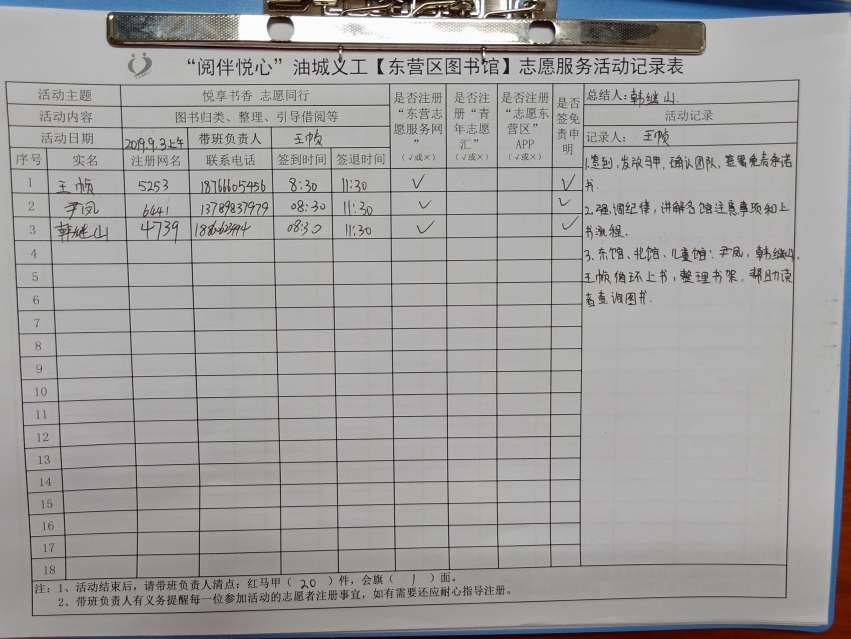 “阅伴悦心”油城义工【东营区图书馆】志愿服务活动记录表
活动主题 悦享书香 志愿同行
活动内容 图书归类、整理、引导借阅等
活动日期 2019.9.3上午 带班负责人 王帧
序号 实名 注册网名 联系电话 签到时间 签退时间
是否注册“东营志愿服务网”（√或×）
是否注册“青年志愿汇”（√或×）
是否注册“志愿东营区”APP（√或×）
是否签免责申明
总结人：韩继山
活动记录
记录人：王帧
1 王帧 5253 18766605456 8:30 11:30 √ √
2 尹凤 6441 13789837979 08:30 11:30 √ √
3 韩继山 4739 08:30 11:30 √ √
4
5
6
7
8
9
10
11
12
13
14
15
16
17
18
1.签到,发放马甲,确认团队,签署免责承诺
书.
2.强调纪律,讲解各馆注意事项和上
书流程.
3.东馆、北馆、儿童馆:尹凤,韩继山、
王帧循环上书,整理书架.帮助读
者查询图书.
注：1、活动结束后，请带班负责人清点：红马甲（20）件，会旗（1）面。
2、带班负责人有义务提醒每一位参加活动的志愿者注册事宜，如有需要还应耐心指导注册。